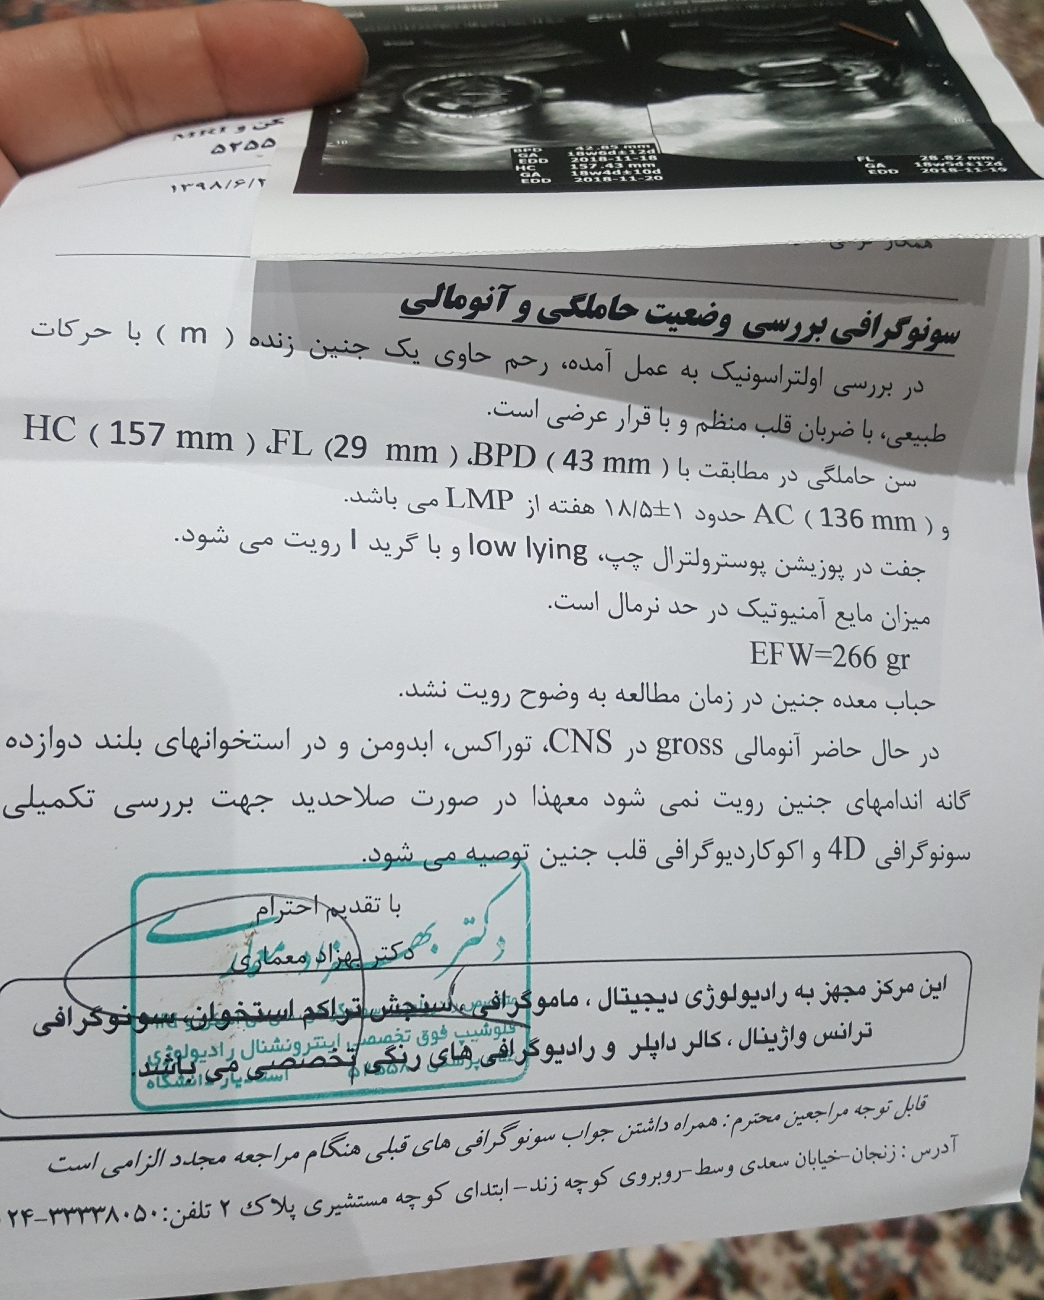 BPD 42.85 mm
GA 18w6d±12d
EDD 2018-11-18
HC 157.43 mm
GA 18w4d±10d
EDD 2018-11-20
FL 28.82 mm
GA 18w5d±12d
EDD 2018-11-19
و MRI
۵۲۵۵
۱۳۹۸/۶/۲
سونوگرافی بررسی وضعیت حاملگی و آنومالی
در بررسی اولتراسونیک به عمل آمده، رحم حاوی یک جنین زنده ( m ) با حرکات
طبیعی، با ضربان قلب منظم و با قرار عرضی است.
سن حاملگی در مطابقت با BPD ( 43 mm )، FL (29 mm )، HC ( 157 mm )
و AC ( 136 mm ) حدود ۱۸/۵±۱ هفته از LMP می باشد.
جفت در پوزیشن پوسترولترال چپ، low lying و با گرید I رویت می شود.
میزان مایع آمنیوتیک در حد نرمال است.
EFW=266 gr
حباب معده جنین در زمان مطالعه به وضوح رویت نشد.
در حال حاضر آنومالی gross در CNS، توراکس، ابدومن و در استخوانهای بلند دوازده
گانه اندامهای جنین رویت نمی شود معهذا در صورت صلاحدید جهت بررسی تکمیلی
سونوگرافی 4D و اکوکاردیوگرافی قلب جنین توصیه می شود.
با تقدیم احترام
دکتر بهزاد معماری
این مرکز مجهز به رادیولوژی دیجیتال ، ماموگرافی ، سنجش تراکم استخوان، سونوگرافی
ترانس واژینال ، کالر داپلر و رادیوگرافی های رنگی تخصصی می باشد.
فلوشیپ فوق تخصصی اینترونشنال رادیولوژی
استادیار دانشگاه
قابل توجه مراجعین محترم : همراه داشتن جواب سونوگرافی های قبلی هنگام مراجعه مجدد الزامی است
آدرس : زنجان-خیابان سعدی وسط-روبروی کوچه زند- ابتدای کوچه مستشیری پلاک ۲ تلفن: ۳۳۳۳۸۰۵۰-۲۴